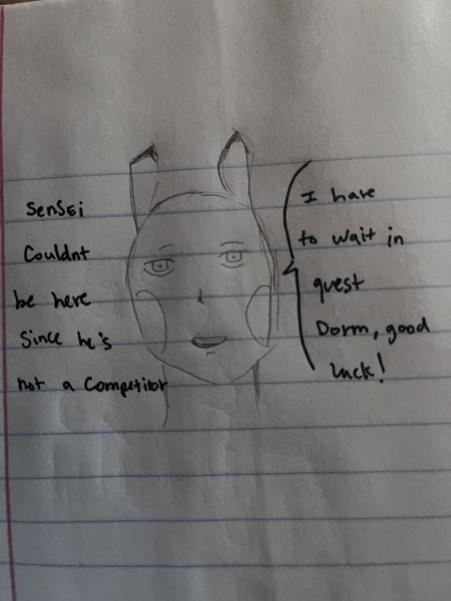 SenSEi
Couldnt
be here
Since he's
not a Competitor
I have
to wait in
guest
Dorm, good
luck!